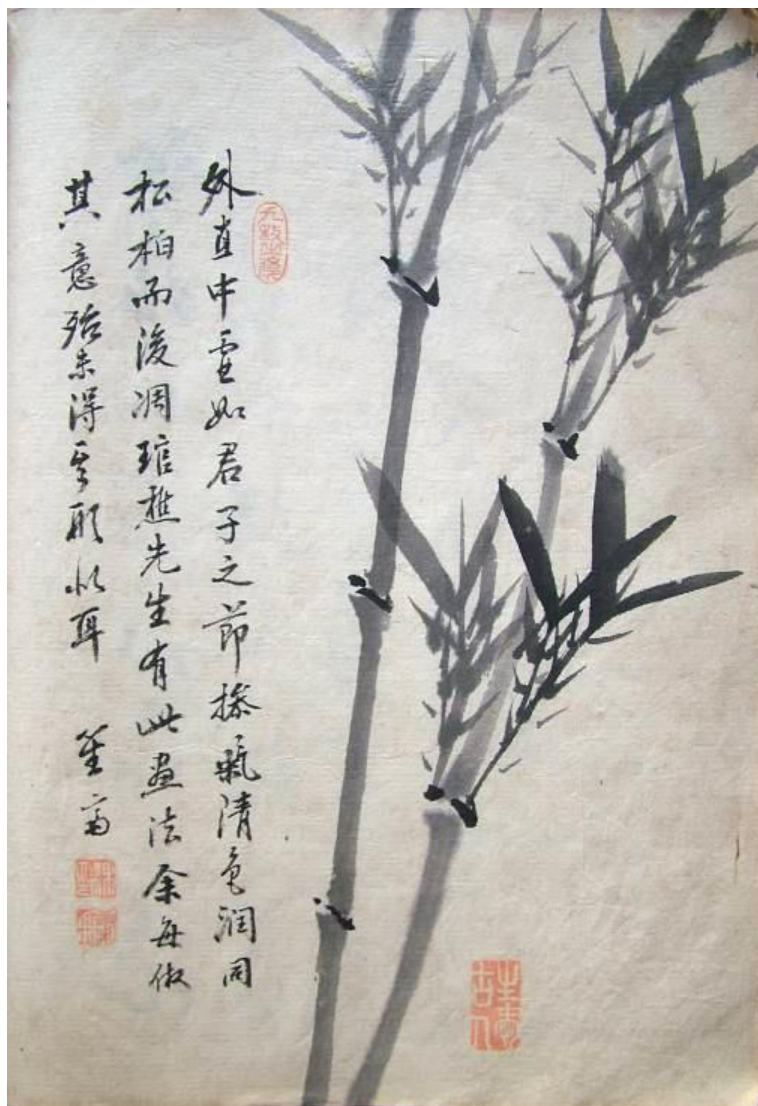 外直中虛如君子之節操氣清色潤同
松柏而後凋琯樵先生有此畫法余每倣
其意殆未得其形似耳
笙